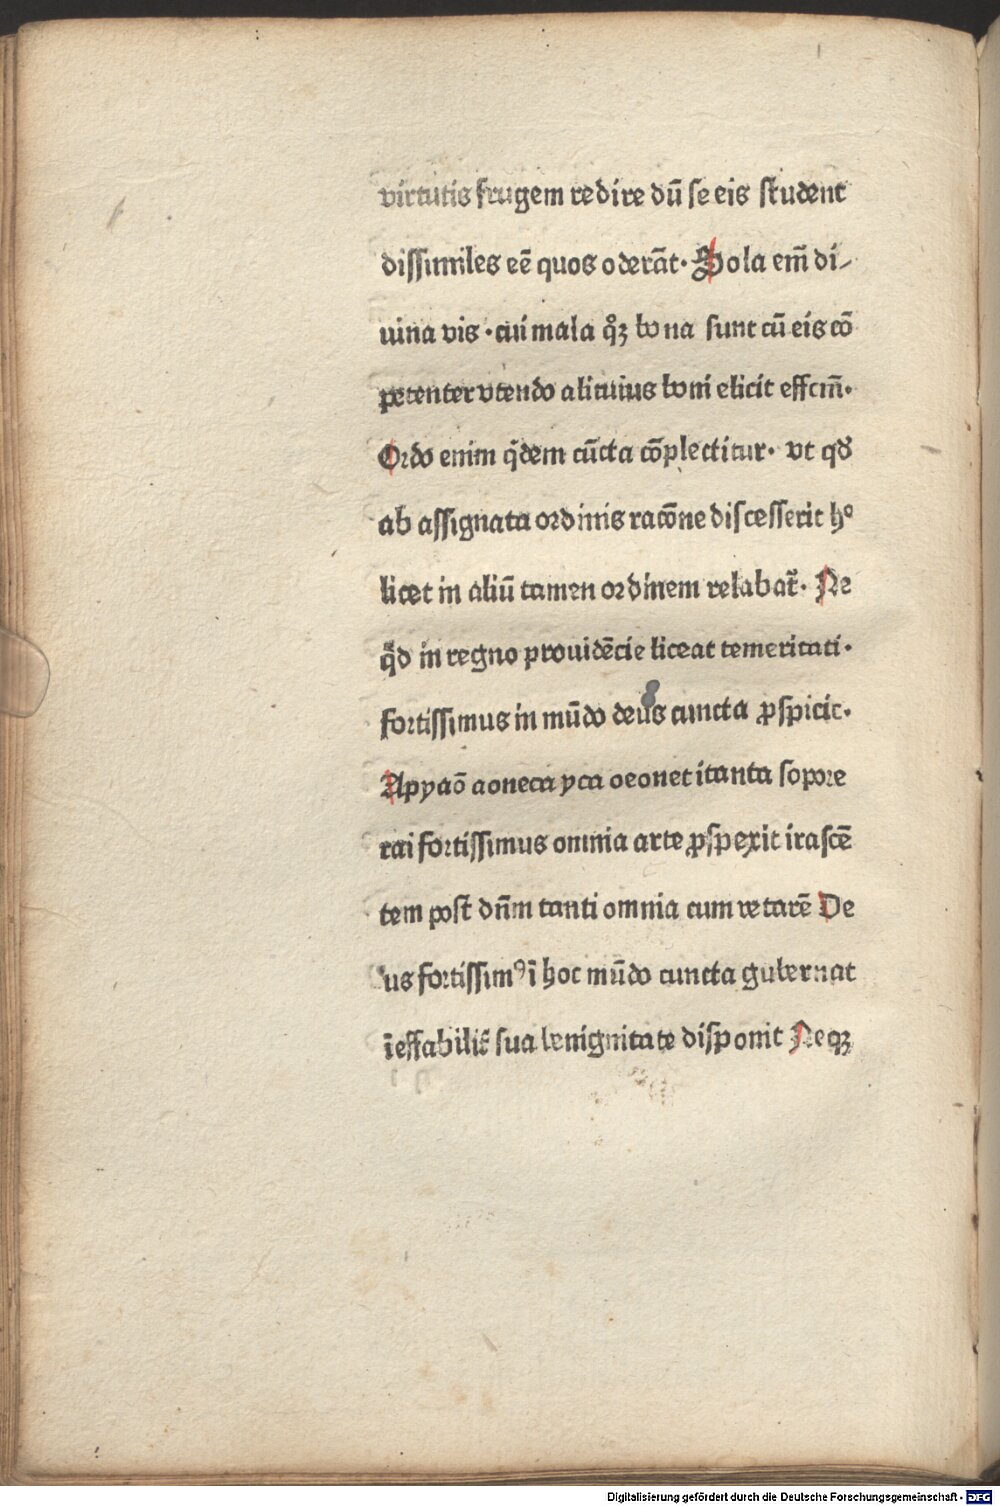 virtutis frugem redire dū se eis student
dissimiles eē quos oderāt· Sola em̄ di⸗
uina vis · cui mala qͦꝫ bona sunt cū eis cō
petenter vtendo alicuius boni elicit effcm̄·
Ordo enim q̇dem cūcta cōplectitur· vt qđ
ab assignata ordinis racōne discesserit hͦ
licet in aliū tamen ordinem relabat᷑· Ne
q̇d in regno prouidēcie liceat temeritati·
fortissimus in mūdo deus cuncta ꝓspicit·
Apyaō aoneca yca oeonet itanta sopore
rai fortissimus omnia arte ꝓspexit irascē
tem post dn̄m tanti omnia cum retarē De
us fortissimꝰ ī hoc mūdo cuncta gubernat
īeffabilit᷑ sua benignitate disponit Neqꝫ
Digitalisierung gefördert durch die Deutsche Forschungsgemeinschaft - DFG